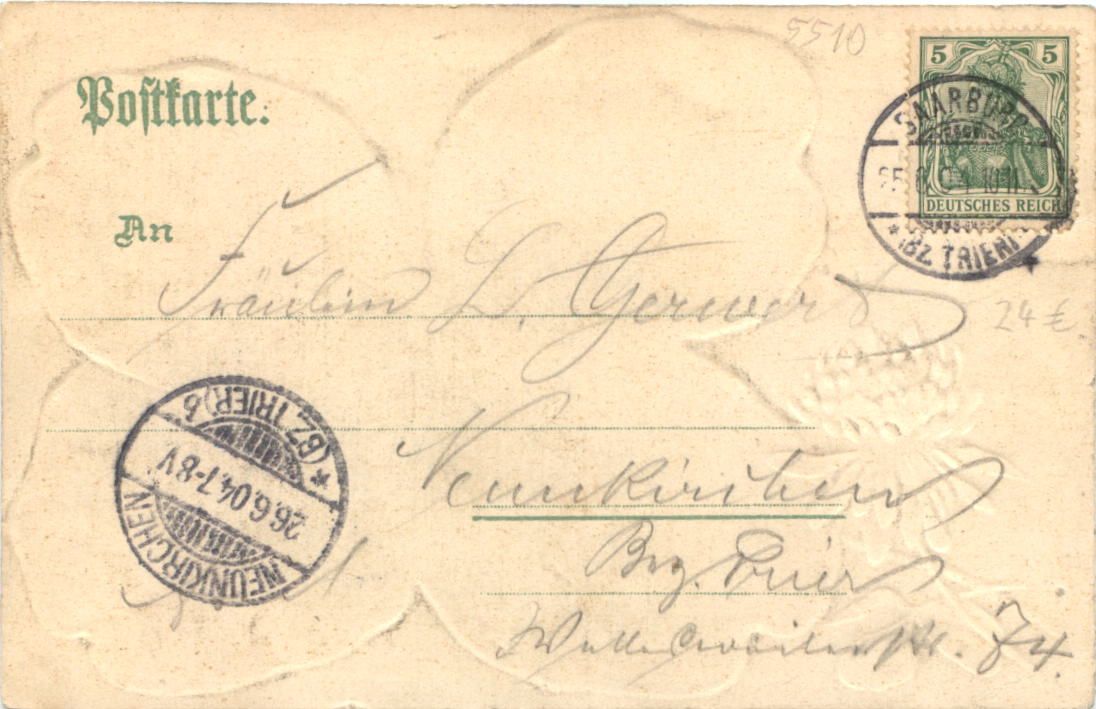 5510
Postkarte.
5 5
DEUTSCHES REICH
SAARBURG
25.6.04 10-11
* (BZ. TRIER)
An
Fräulein L. Gerwers
24 €
NEUNKIRCHEN
26.6.04.7-8V
* (BZ. TRIER) 6
Neunkirchen
Bez. Trier
Wellesweilerstr. 74.